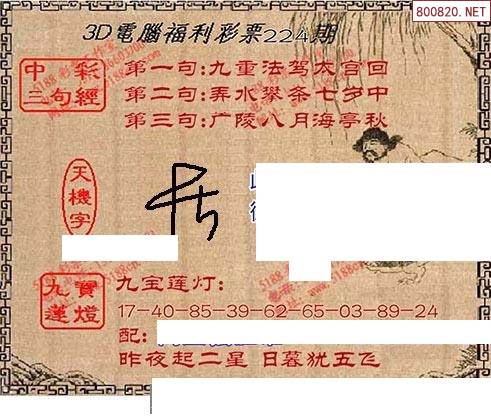 800820.NET
3D電腦福利彩票224期
中彩
三句經
第一句:九重法驾大宫回
第二句:弄水攀条七岁中
第三句:广陵八月海亭秋
天機字
九寶蓮燈
九宝莲灯:
17-40-85-39-62-65-03-89-24
配:
昨夜起二星 日暮犹五飞